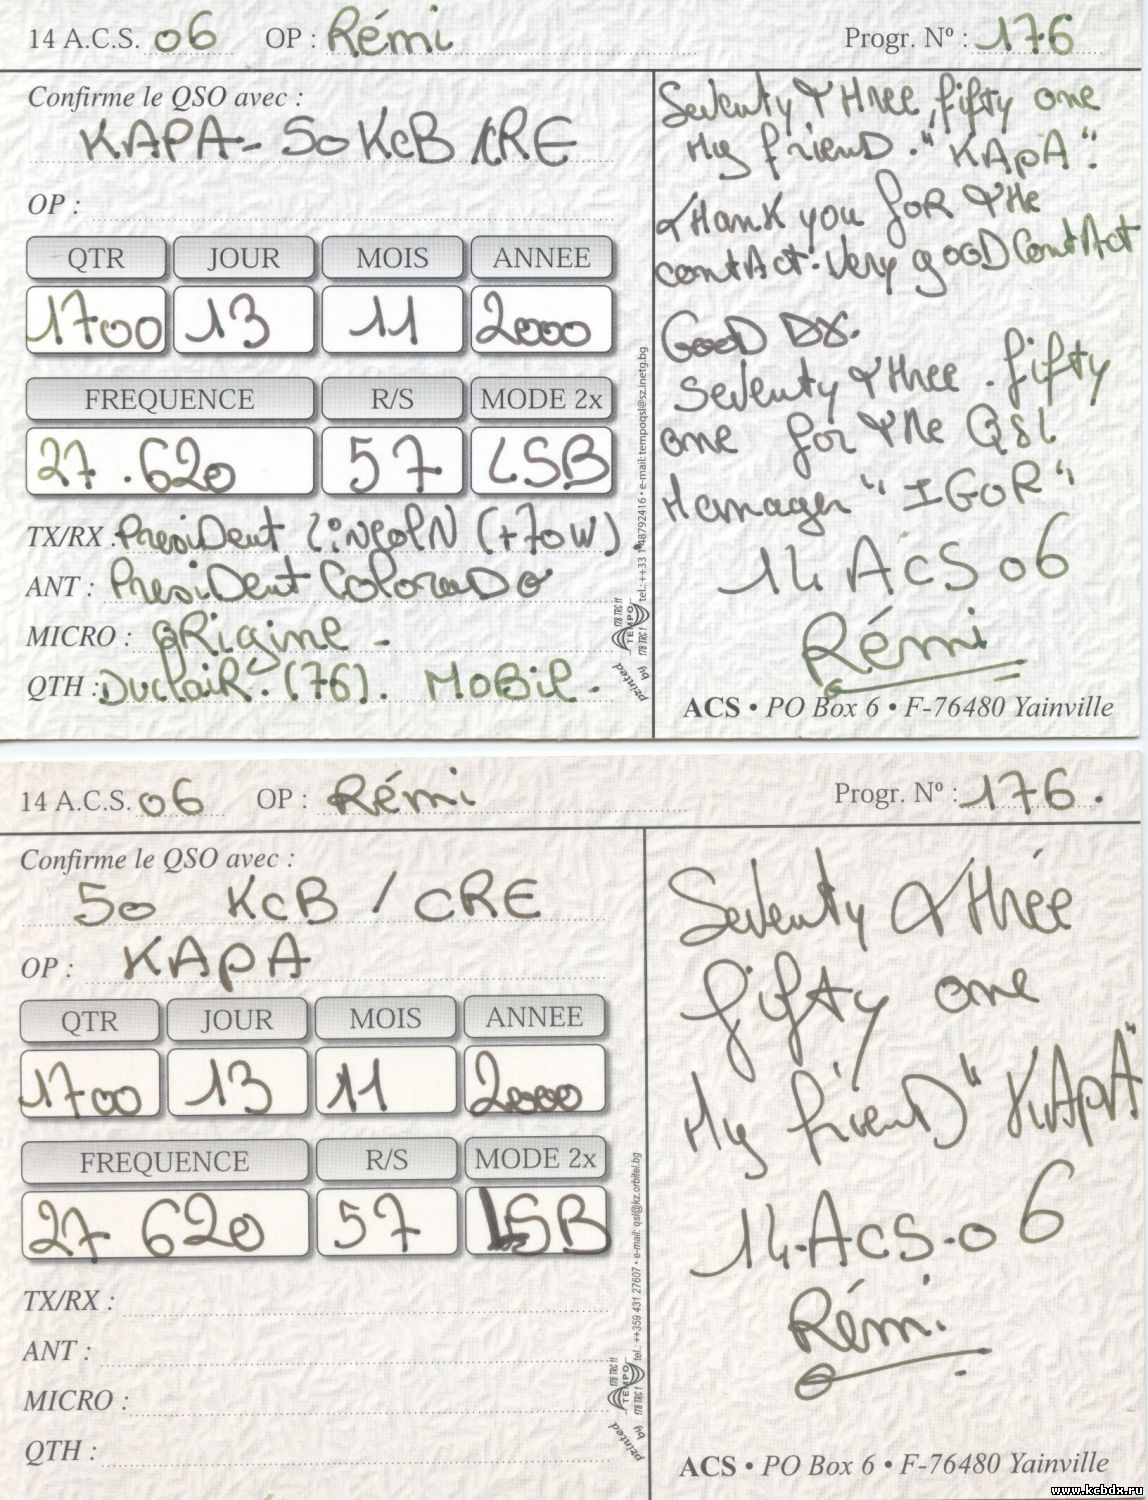 14 A.C.S. 06 OP : Rémi Progr. Nº : 176
Confirme le QSO avec :
KAPA - 50 KCB / CRE
OP :
QTR JOUR MOIS ANNEE
1700 13 11 2000
FREQUENCE R/S MODE 2x
27.620 57 LSB
TX/RX : PresiDent LincolN (+70W).
ANT : PresiDent ColoraDo
MICRO : ORigine -
QTH : DuclaiR. (76). MoBil.
Seventy three, fifty one
My frienD. "KApA".
thank you foR the
contAct. Very gooD ContAct
GooD DX.
Seventy three. fifty
one for the QSL
Manager "IGoR"
14 ACS 06
Rémi
ACS • PO Box 6 • F-76480 Yainville
printed by TEMPO 178 TRC 11 178 TRC 1 tel.: ++33 1 48792416 • e-mail: tempoqsl@sz.inetg.bg
14 A.C.S. 06 OP : Rémi Progr. Nº : 176.
Confirme le QSO avec :
50 KCB / CRE
OP : KAPA
QTR JOUR MOIS ANNEE
1700 13 11 2000
FREQUENCE R/S MODE 2x
27 620 57 LSB
TX/RX :
ANT :
MICRO :
QTH :
Seventy three
fifty one
My frienD "KApA"
14.ACS.06
Rémi.
ACS • PO Box 6 • F-76480 Yainville
printed by TEMPO 178 TRC 11 178 TRC 1 tel.: ++359 431 27607 • e-mail: qsl@kz.orbitel.bg
www.kcbdx.ru